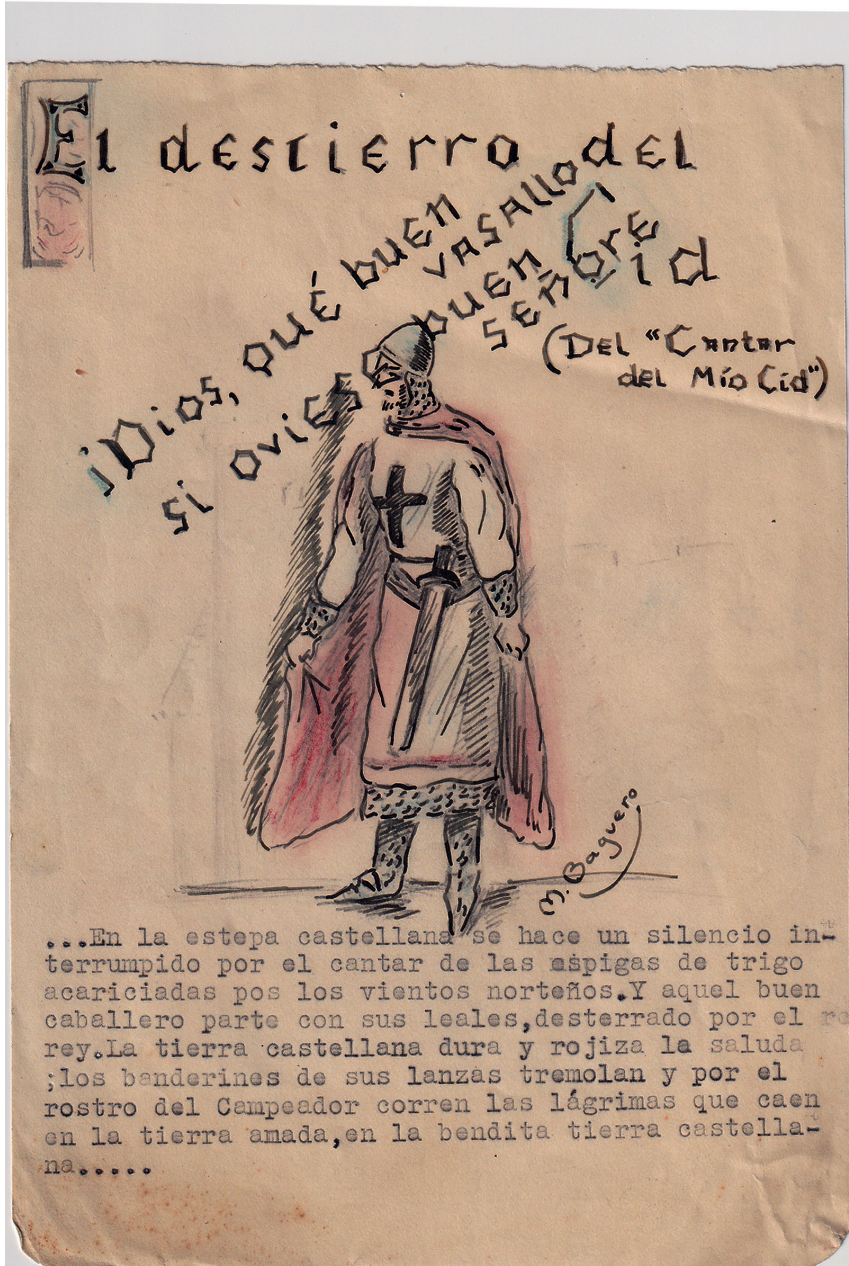 El destierro del
Cid
(Del "Cantar
del Mío Cid")
¡Dios, qué buen vasallo
si oviese buen señore
M. Baquero
...En la estepa castellana se hace un silencio in-
terrumpido por el cantar de las espigas de trigo
acariciadas pos los vientos norteños.Y aquel buen
caballero parte con sus leales,desterrado por el re
rey.La tierra castellana dura y rojiza la saluda
;los banderines de sus lanzas tremolan y por el
rostro del Campeador corren las lágrimas que caen
en la tierra amada,en la bendita tierra castella-
na.....